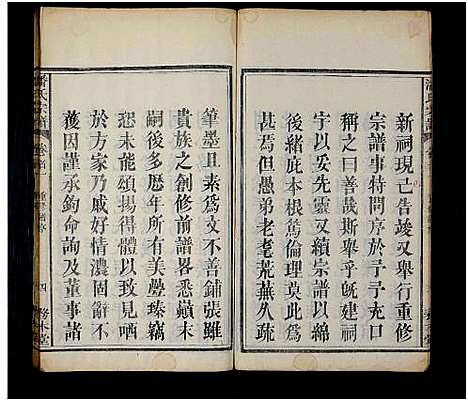 新祠現已告竣又舉行重修
宗譜事特問序於予予克口
稱之曰善哉斯舉乎既建祠
宇以妥先靈又續宗譜以綿
後緒庇本根篤倫理莫此爲
甚焉但愚弟老耄荒蕪久疏
筆墨且素爲文不善鋪張雖
貴族之創修前譜畧悉顛末
嗣後多歷年所有美疊臻竊
恐未能頌揚得體以致見哂
於方家乃戚好情濃固辭不
獲因謹承鈞命詢及董事諸
潘氏宗譜
四
務本堂